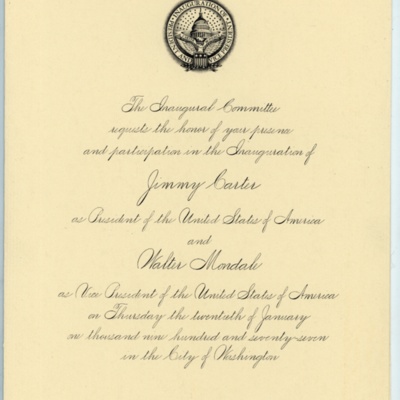 The Inaugural Committee
requests the honor of your presence
and participation in the Inauguration of
Jimmy Carter
as President of the United States of America
and
Walter Mondale
as Vice President of the United States of America
on Thursday the twentieth of January
one thousand nine hundred and seventy-seven
in the City of Washington